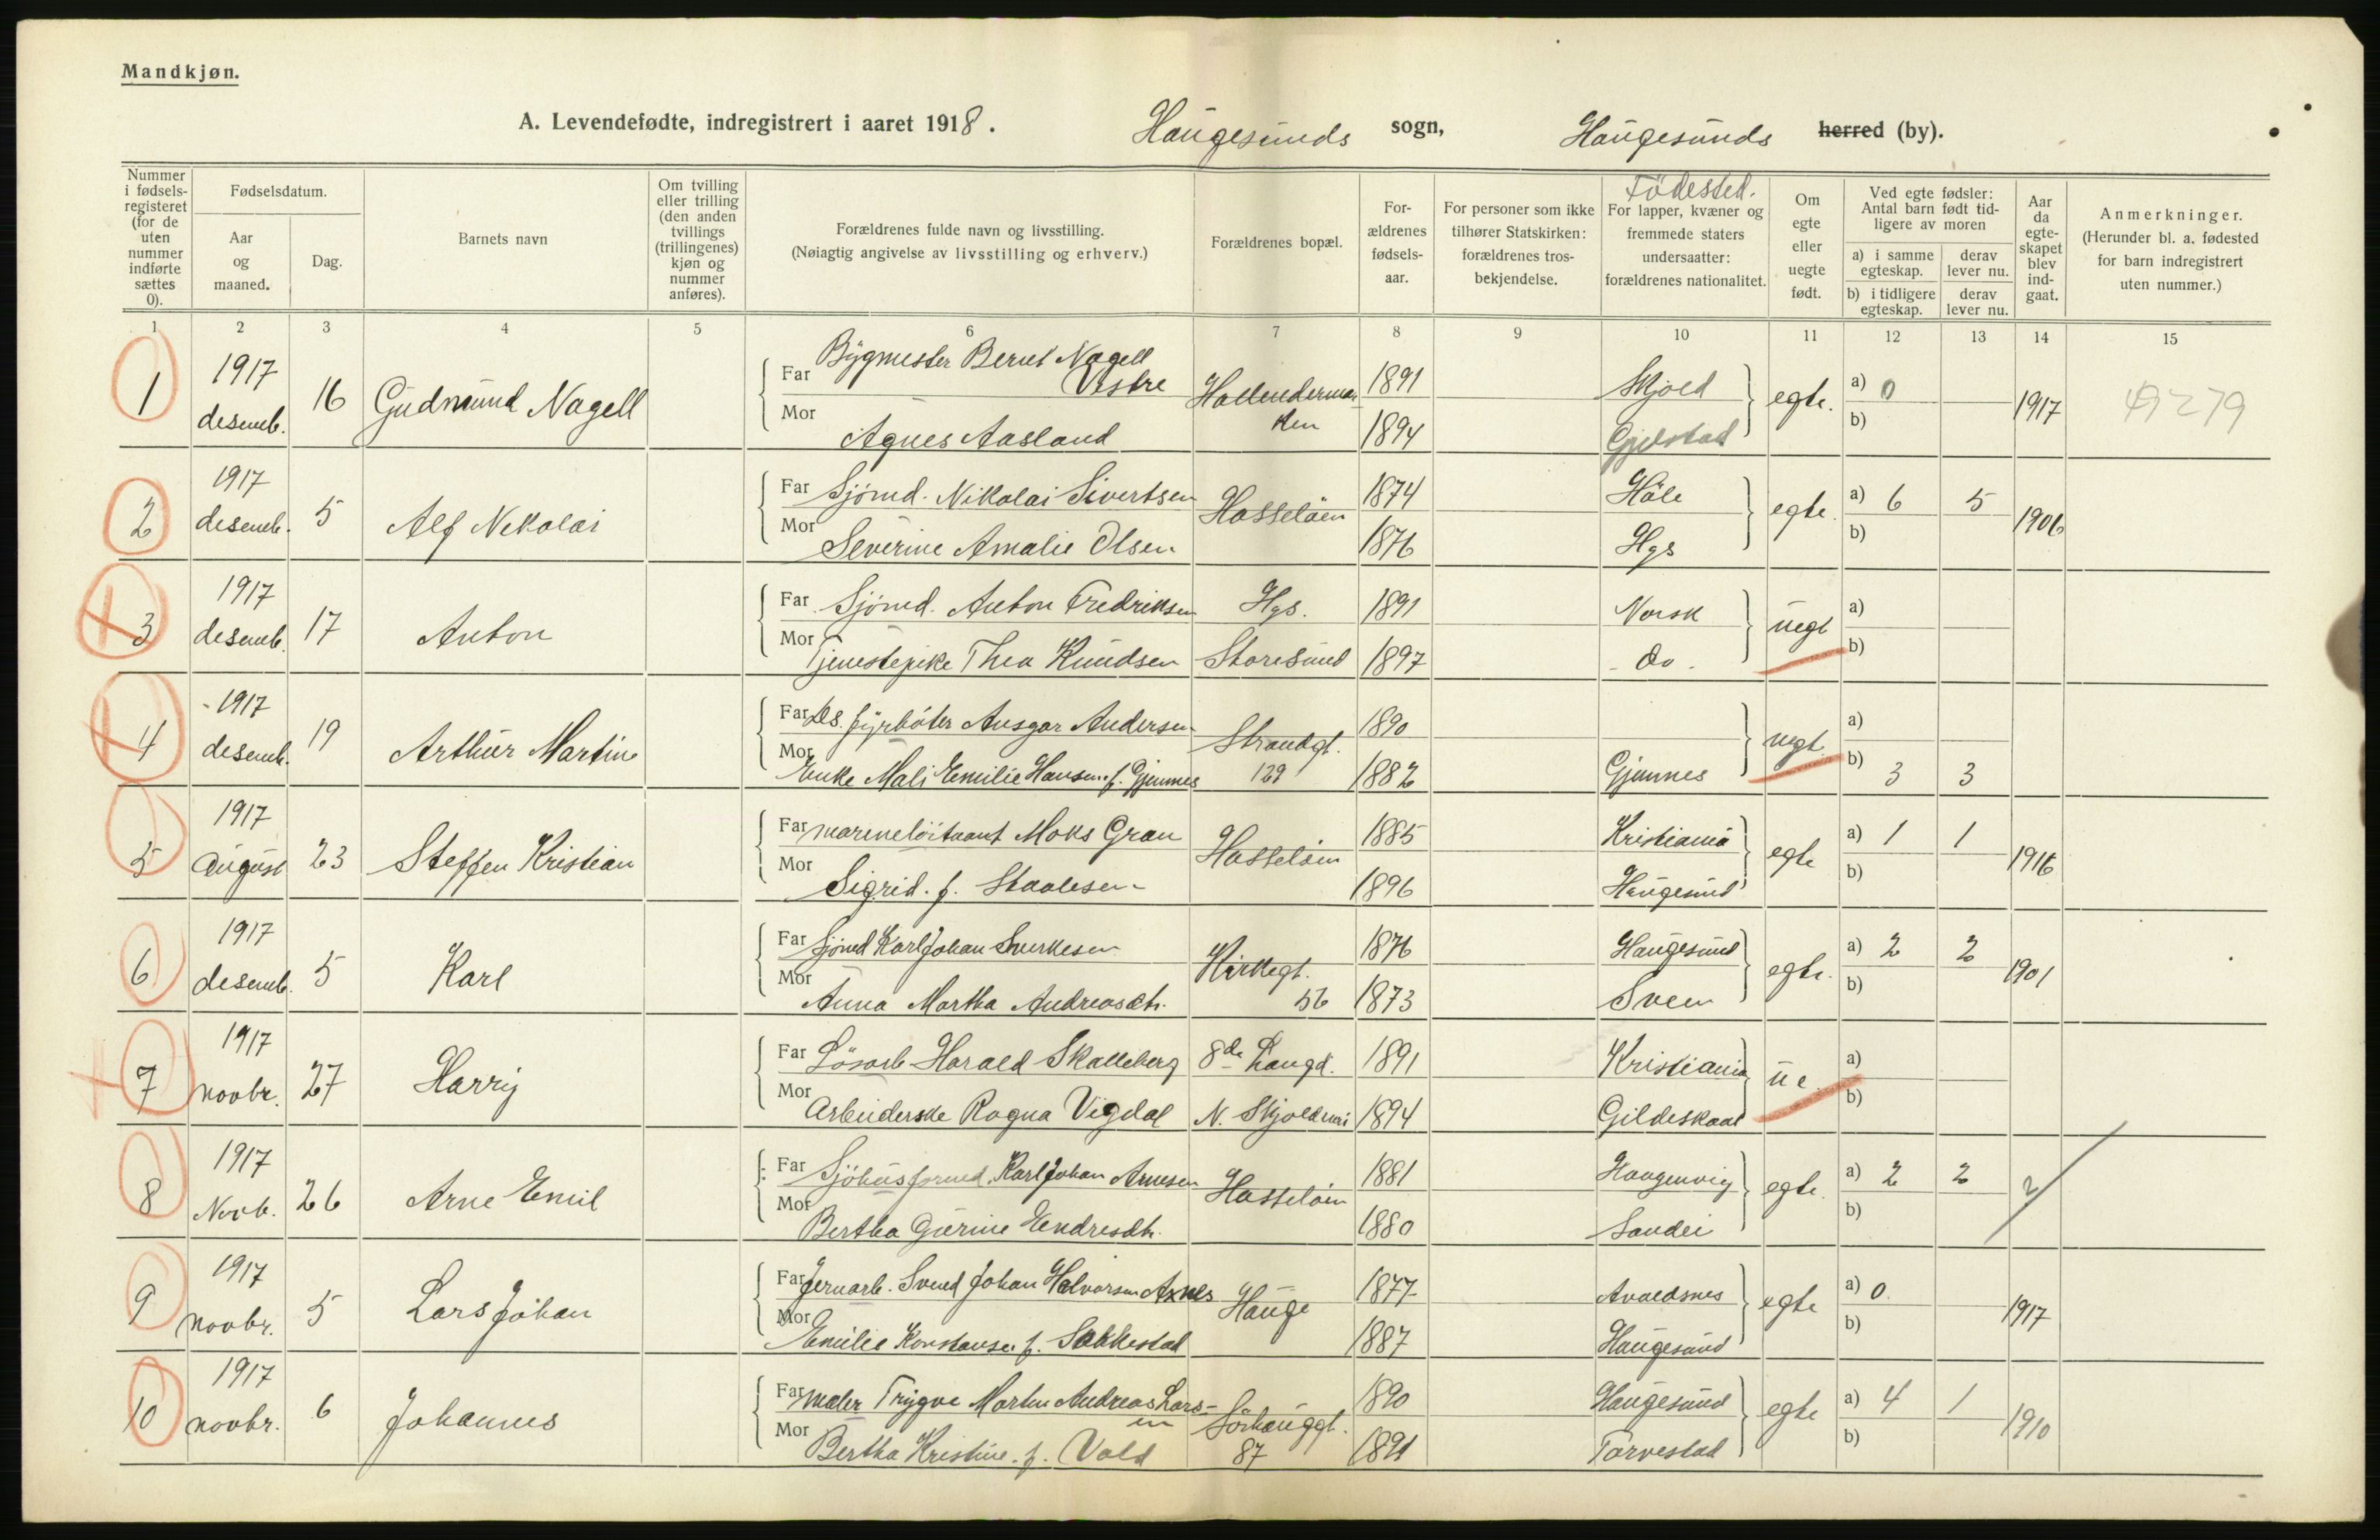 Mandkjøn.
A. Levendefødte, indregistrert i aaret 1918. Haugesunds sogn, Haugesunds herred (by).
Nummer i fødsels-registeret (for de uten nummer indførte sættes 0).
Fødselsdatum.
Aar og maaned.
Dag.
Barnets navn
Om tvilling eller trilling (den anden tvillings (trillingenes) kjøn og nummer anføres).
Forældrenes fulde navn og livsstilling.
(Nøiagtig angivelse av livsstilling og erhverv.)
Forældrenes bopæl.
For-ældrenes fødsels-aar.
For personer som ikke tilhører Statskirken: forældrenes tros-bekjendelse.
Födested.
For lapper, kvæner og fremmede staters undersaatter: forældrenes nationalitet.
Om egte eller uegte født.
Ved egte fødsler: Antal barn født tid-ligere av moren
a) i samme egteskap. derav lever nu.
b) i tidligere egteskap. derav lever nu.
Aar da egte-skapet blev ind-gaat.
Anmerkninger.
(Herunder bl. a. fødested for barn indregistrert uten nummer.)
1 2 3 4 5 6 7 8 9 10 11 12 13 14 15
1 1917 desemb. 16 Gudmund Nagell
Far Bygmester Bernt Nagell Vestre Hollendermarken 1891 Skjold egte. a) 0 1917
Mor Agnes Aasland 1894 Gjerstad b)
2 1917 desemb. 5 Alf Nikolai
Far Sjömd. Nikolai Sivertsen Hasselöen 1874 Håle egte. a) 6 5 1906
Mor Severine Amalie Olsen 1876 Hgs b)
3 1917 desemb. 17 Anton
Far Sjömd. Anton Fredriksen Hgs. 1891 Norsk uegt a)
Mor Tjenestepike Thea Knudsen Storesund 1897 - do - b)
4 1917 desemb. 19 Arthur Martin
Far Ds. fyrböter Ansgar Andersen Strandgt. 1890 uegt. a)
Mor Enke Mali Emilie Hansen f. Gjemnes 129 1882 Gjemnes b) 3 3
5 1917 August 23 Steffen Kristian
Far marineløitnant Moks Gran Hasselöen 1885 Kristiania egte a) 1 1 1916
Mor Sigrid. f. Staalesen 1896 Haugesund b)
6 1917 desemb. 5 Karl
Far Sjömd Karl Johan Sverkesen Kirkegt. 1876 Haugesund egte. a) 2 2 1901
Mor Anna Martha Andreasdtr. 56 1873 Sveen b)
7 1917 novbr. 27 Harry
Far Lösarb Harald Skalleberg 8de Laugd. 1891 Kristiania u e. a)
Mor Arbeiderske Ragna Vigdal N. Skjoldnes 1894 Gildeskaal b)
8 1917 Novb. 26 Arne Emil
Far Sjöhusformd. Karl Johan Arnesen Hasselöen 1881 Haugenvig egte. a) 2 2 ?
Mor Bertha Gurine Endresdtr. 1880 Sandei b)
9 1917 novbr. 5 Lars Johan
Far Jernarb. Svend Johan Halvorsen Axnes Hauge 1877 Avaldsnes egte a) 0 1917
Mor Emilie Konstanse. f. Sakkestad 1887 Haugesund b)
10 1917 novbr. 6 Johannes
Far maler Trygve Martin Andreas Larsen Sörhauggt. 1890 Haugesund egte a) 4 1 1910
Mor Bertha Kristine. f. Vold 87 1891 Torvestad b)